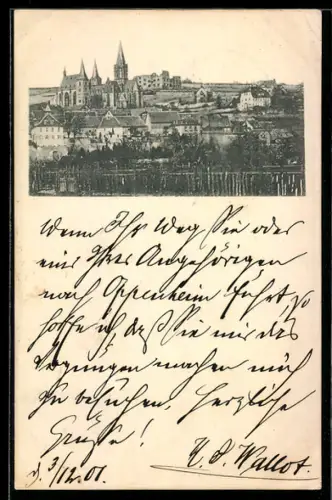 Wenn Ihr Weg Sie oder
eins Ihrer Angehörigen
nach Oppenheim führt, so
hoffe ich, daß Sie mir das
Vergnügen machen mich
zu besuchen. Herzliche
Grüße!
d. 3/12.01. Wallot.